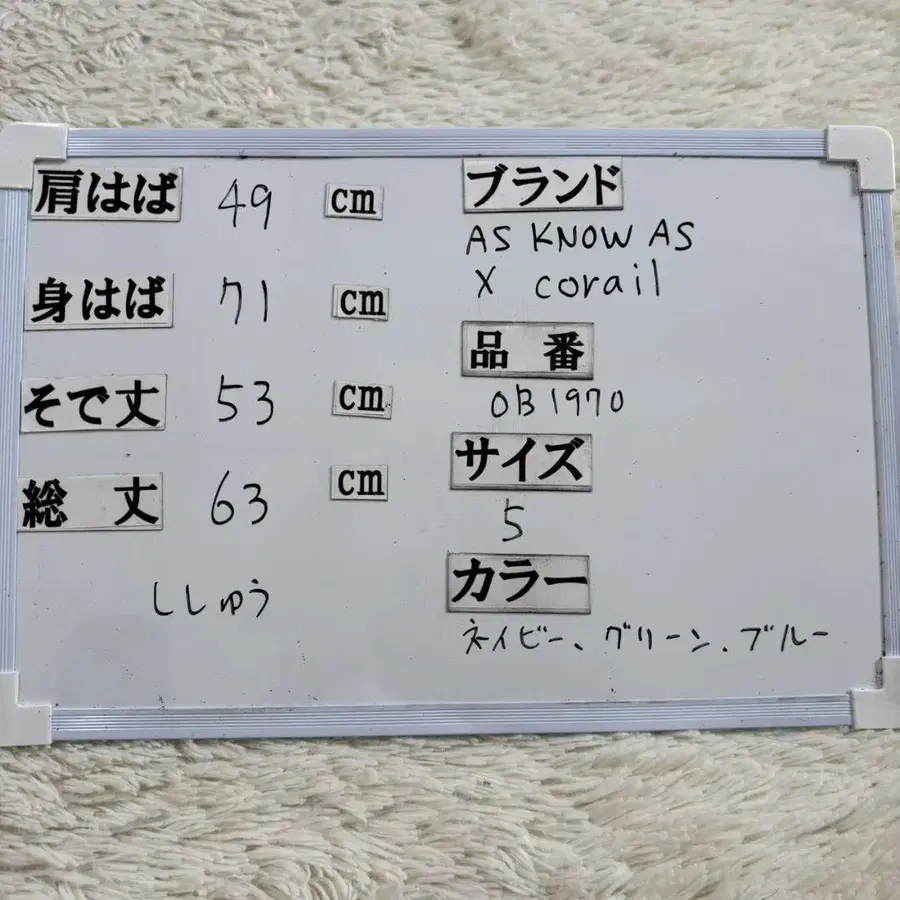 肩はば 49 cm
身はば 71 cm
そで丈 53 cm
総丈 63 cm
ししゅう
ブランド
AS KNOW AS
X corail
品番
OB1970
サイズ
5
カラー
ネイビー、グリーン、ブルー